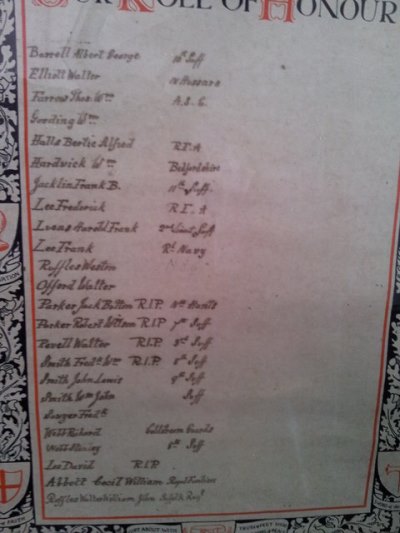 OUR ROLL OF HONOUR
Borrell Albert George 10th Suff
Elliott Walter Hussars
Farrow Thos. Wm A.S.C.
Gooding Wm
Halls Bertie Alfred R.F.A
Hardwick Wm Bedfordshire
Jacklin Frank B. 11th Suff.
Lee Frederick R.F.A
Lucas Harold Frank 2nd Lieut. Suff
Lee Frank Rl Navy
Ruffles Weston
Offord Walter
Parker Jack Botton R.I.P. Hants
Parker Robert R.I.P 7th Suff
Pavell Walter R.I.P. 3rd Suff
Smith Fredk Wm R.I.P. 8th Suff
Smith John Lewis 9th Suff
Smith Wm John Suff
Sawyer Fredk
Webb Richard Coldstream Guards
Webb Stanley 5th Suff
Lee David R.I.P.
Abbott Cecil William Royal Fusiliers
Ruffles Walter William John Suffolk Regt